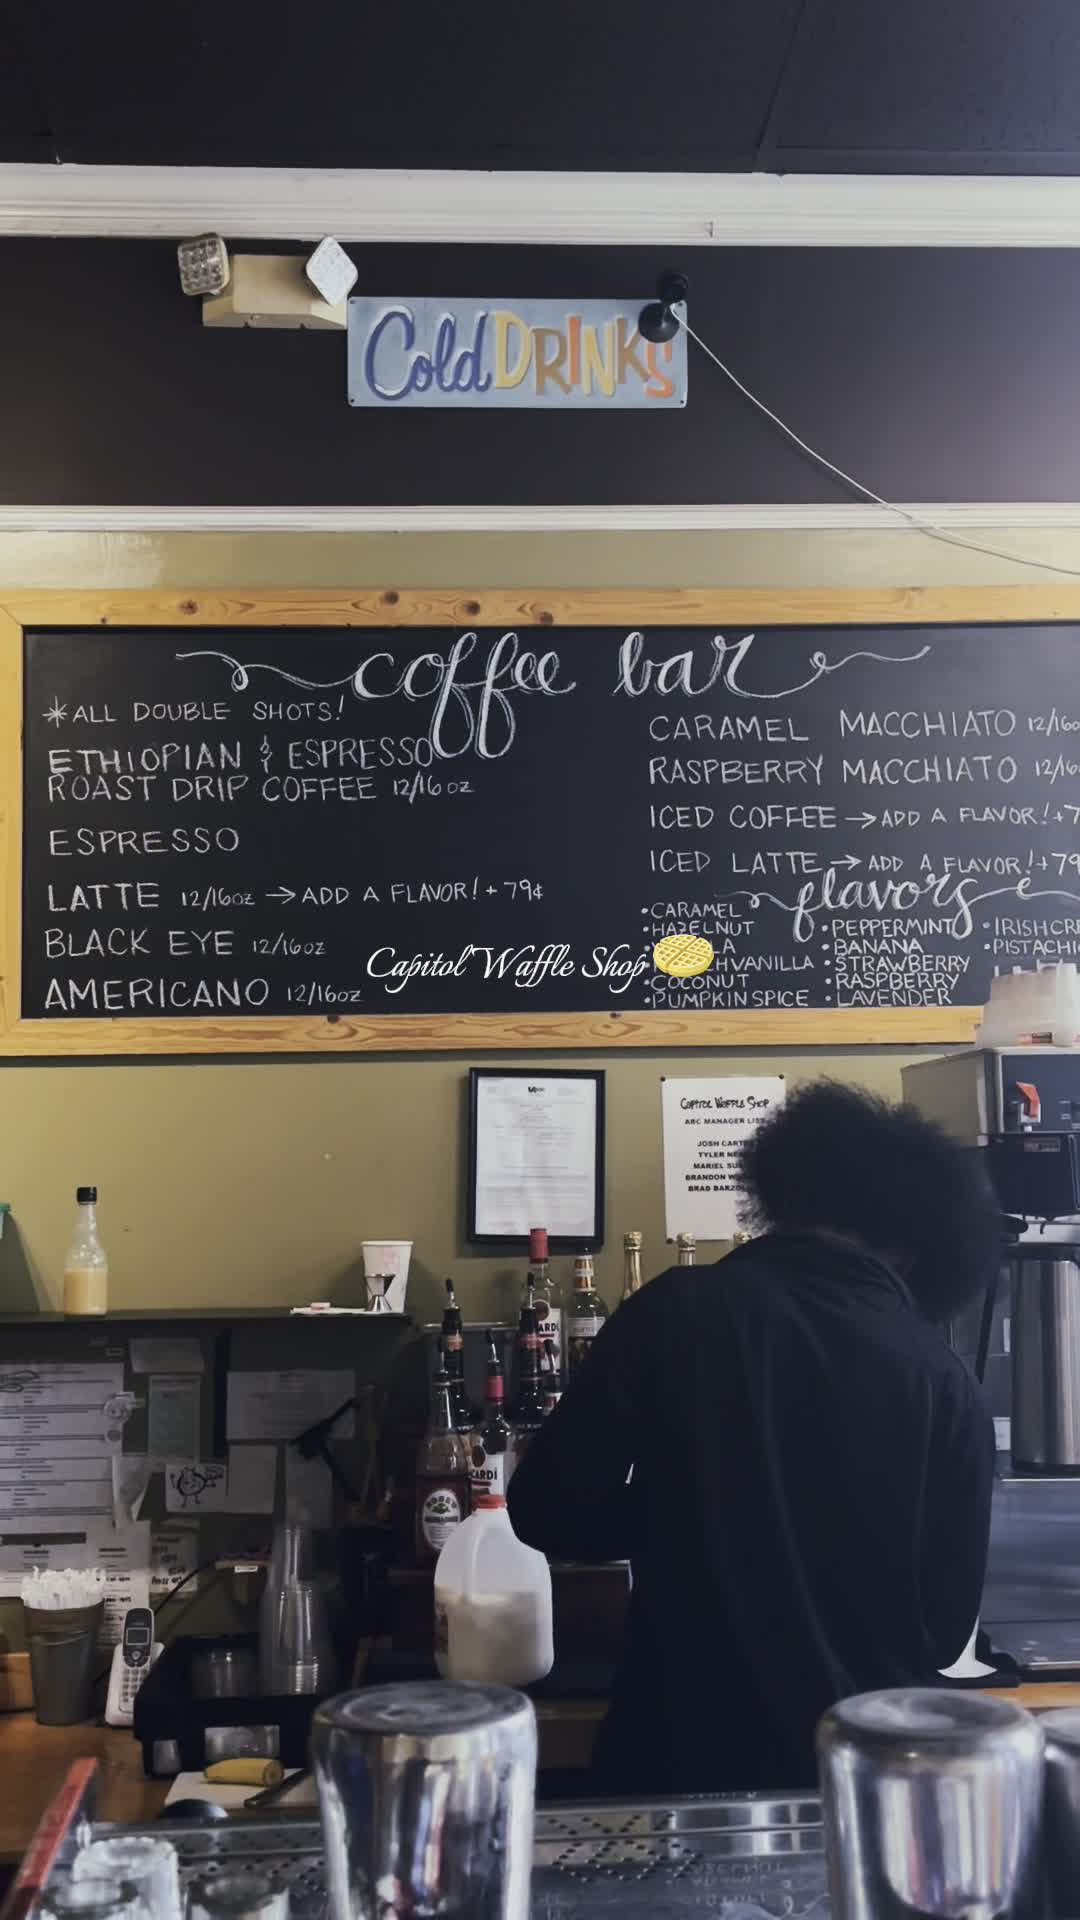 Cold DRINKS
coffee bar
*ALL DOUBLE SHOTS!
ETHIOPIAN & ESPRESSO
ROAST DRIP COFFEE 12/16oz
ESPRESSO
LATTE 12/16oz → ADD A FLAVOR! + 79¢
BLACK EYE 12/16oz
AMERICANO 12/16oz
CARAMEL MACCHIATO 12/16o
RASPBERRY MACCHIATO 12/16
ICED COFFEE → ADD A FLAVOR! +7
ICED LATTE → ADD A FLAVOR! +79
flavors
• CARAMEL
• HAZELNUT
• COCONUT
• PUMPKIN SPICE
• PEPPERMINT
• BANANA
• STRAWBERRY
• RASPBERRY
• LAVENDER
• IRISH CR
• PISTACHI
Capitol Waffle Shop
CAPITOL WAFFLE SHOP
ABC MANAGER LIS
JOSH CART
TYLER
MARIEL
BRANDON
BRAD